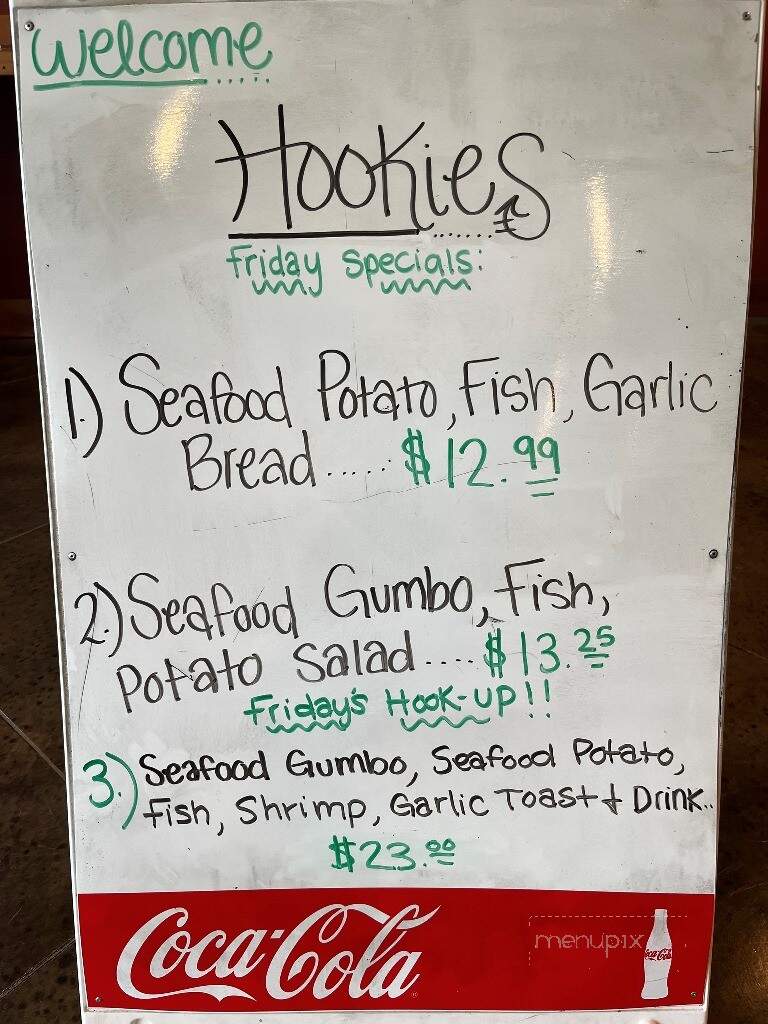 Welcome
Hookies
Friday Specials:
1.) Seafood Potato, Fish, Garlic
Bread ..... $12.99
2.) Seafood Gumbo, Fish,
Potato Salad .... $13.25
Friday's Hook-up!!
3.) Seafood Gumbo, Seafood Potato,
Fish, Shrimp, Garlic Toast & Drink..
$23.00
Coca-Cola
menupix
Coca-Cola